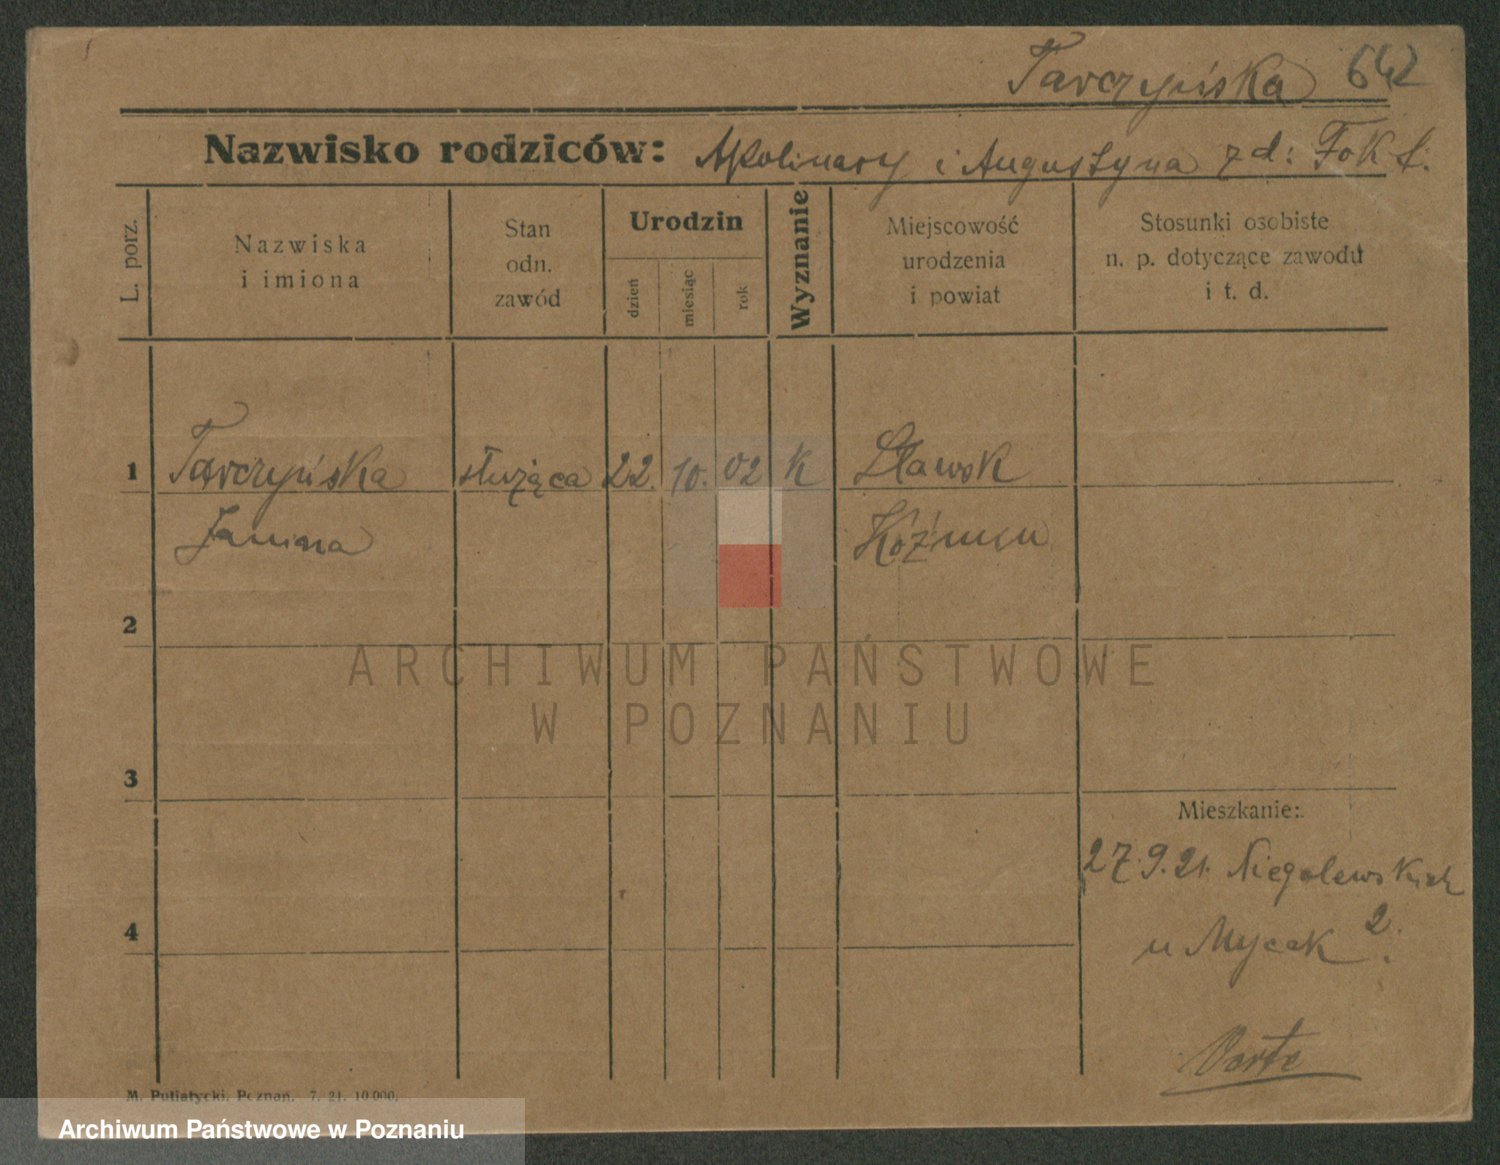 Tarczyńska 642
Nazwisko rodziców: Apolinary i Augustyna z d: Fokt.
L. porz.
Nazwiska
i imiona
Stan
odn.
zawód
Urodzin
dzień
miesiąc
rok
Wyznanie
Miejscowość
urodzenia
i powiat
Stosunki osobiste
n. p. dotyczące zawodu
i t. d.
1 Tarczyńska służąca 22. 10. 02 k Sławsk
Janina Koźmin
2
ARCHIWUM PAŃSTWOWE
W POZNANIU
3
Mieszkanie:
27.9.21. Niegolewskich
4
u Mycak 2.
M. Putiatycki, Poznań. 7. 21. 10.000.
Archiwum Państwowe w Poznaniu